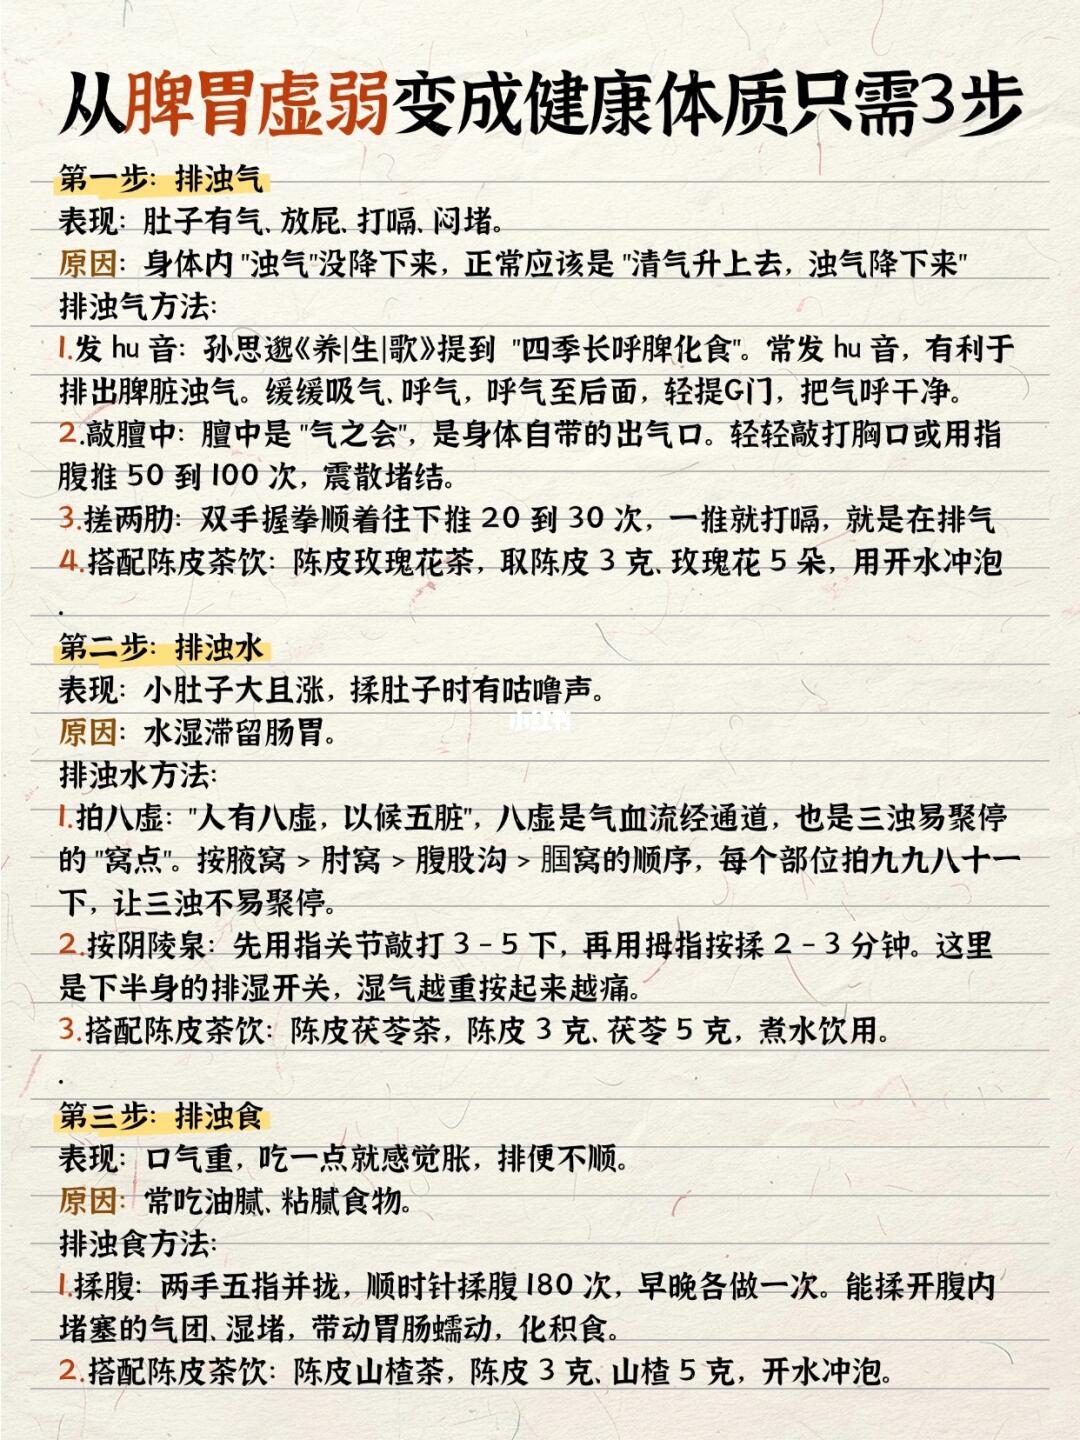 从脾胃虚弱变成健康体质只需3步
第一步：排浊气
表现：肚子有气、放屁、打嗝、闷堵。
原因：身体内"浊气"没降下来，正常应该是"清气升上去，浊气降下来"
排浊气方法：
1.发 hu 音：孙思邈《养|生|歌》提到 "四季长呼脾化食"。常发 hu 音，有利于
排出脾脏浊气。缓缓吸气、呼气，呼气至后面，轻提G门，把气呼干净。
2.敲膻中：膻中是"气之会"，是身体自带的出气口。轻轻敲打胸口或用指
腹推 50 到 100 次，震散堵结。
3.搓两肋：双手握拳顺着往下推 20 到 30 次，一推就打嗝，就是在排气
4.搭配陈皮茶饮：陈皮玫瑰花茶，取陈皮 3 克、玫瑰花 5 朵，用开水冲泡
.
第二步：排浊水
表现：小肚子大且涨，揉肚子时有咕噜声。
原因：水湿滞留肠胃。
小红书
排浊水方法：
1.拍八虚："人有八虚，以候五脏"，八虚是气血流经通道，也是三浊易聚停
的 "窝点"。按腋窝 > 肘窝 > 腹股沟 > 腘窝的顺序，每个部位拍九九八十一
下，让三浊不易聚停。
2.按阴陵泉：先用指关节敲打 3 - 5 下，再用拇指按揉 2 - 3 分钟。这里
是下半身的排湿开关，湿气越重按起来越痛。
3.搭配陈皮茶饮：陈皮茯苓茶，陈皮 3 克、茯苓 5 克，煮水饮用。
.
第三步：排浊食
表现：口气重，吃一点就感觉胀，排便不顺。
原因：常吃油腻、粘腻食物。
排浊食方法：
1.揉腹：两手五指并拢，顺时针揉腹180 次，早晚各做一次。能揉开腹内
堵塞的气团、湿堵，带动胃肠蠕动，化积食。
2.搭配陈皮茶饮：陈皮山楂茶，陈皮 3 克、山楂 5 克，开水冲泡。